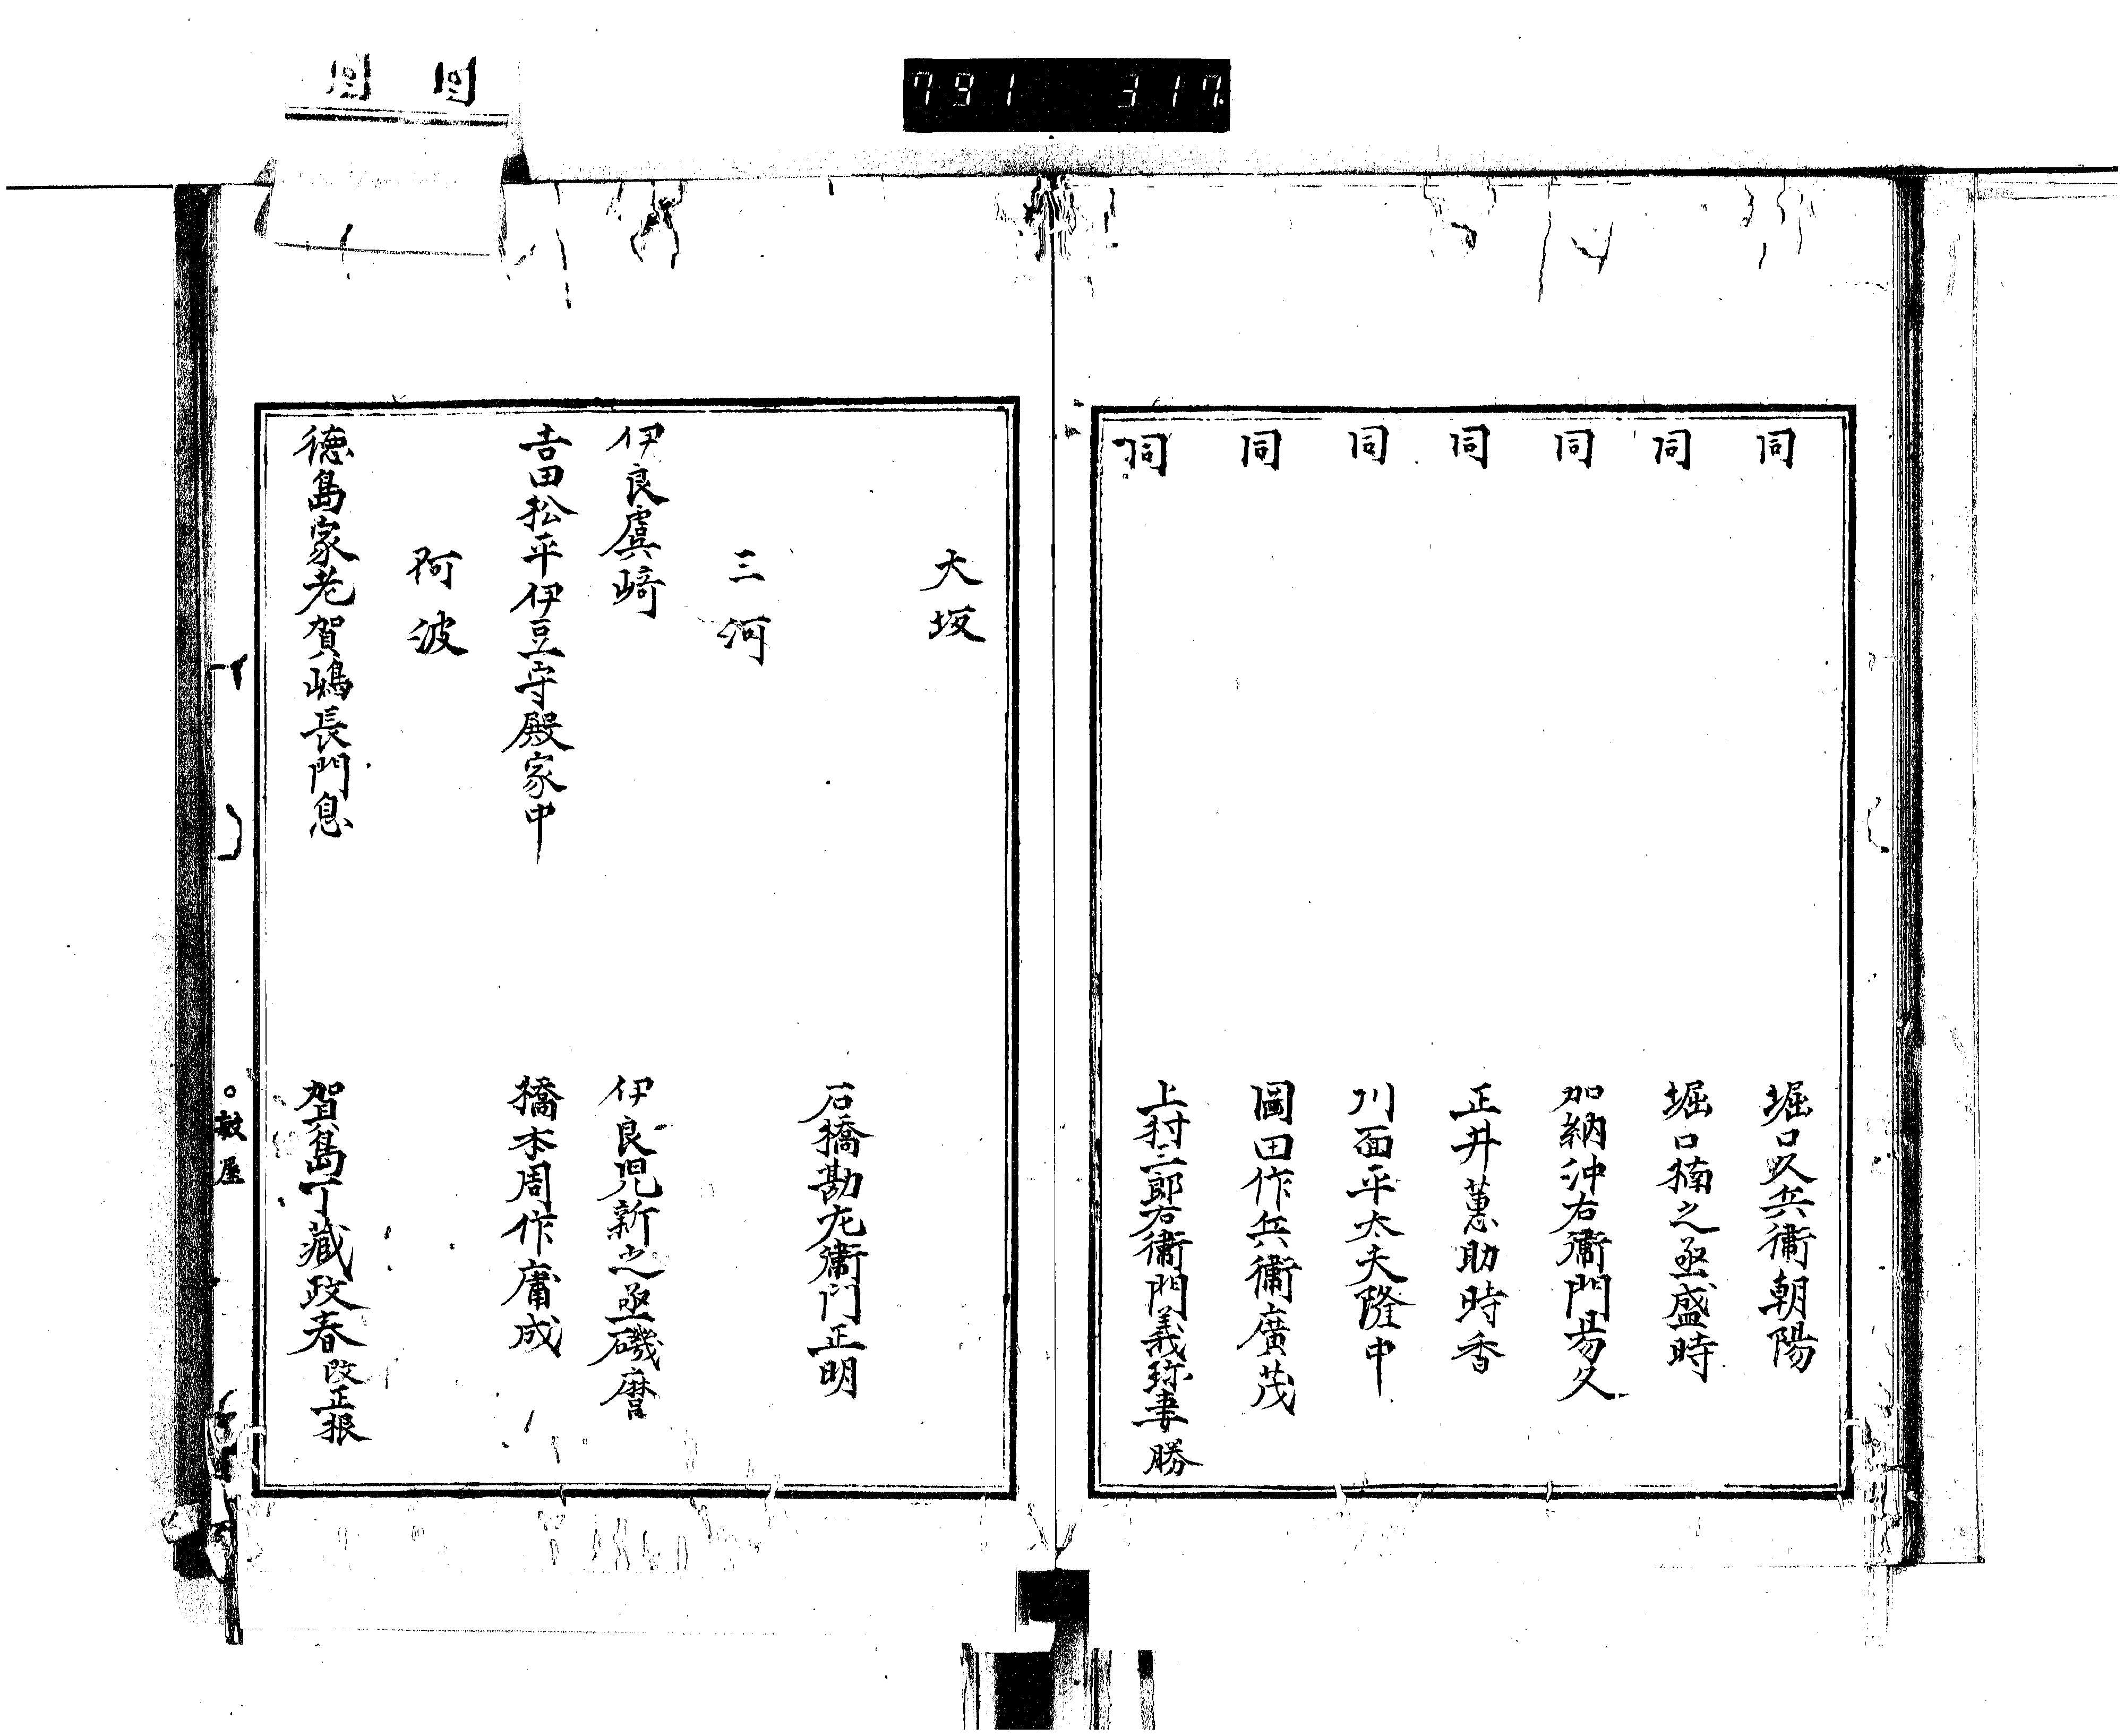 791 317
同 堀口久兵衛朝陽
同 堀口楠之丞盛時
同 加納沖右衛門易久
同 正井蕙助時香
同 川面平太夫隆中
同 岡田作兵衛廣茂
同 上村三郎右衛門義珎妻勝
大坂
石橋勘左衛門正明
三河
伊良虞崎 伊良児新之丞磯麿
吉田松平伊豆守殿家中 橋本周作庸成
阿波
徳島家老賀嶋長門息 賀島丁藏政春改正根
同 同